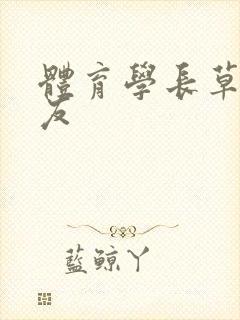 體育學長草
友
藍鯨丫